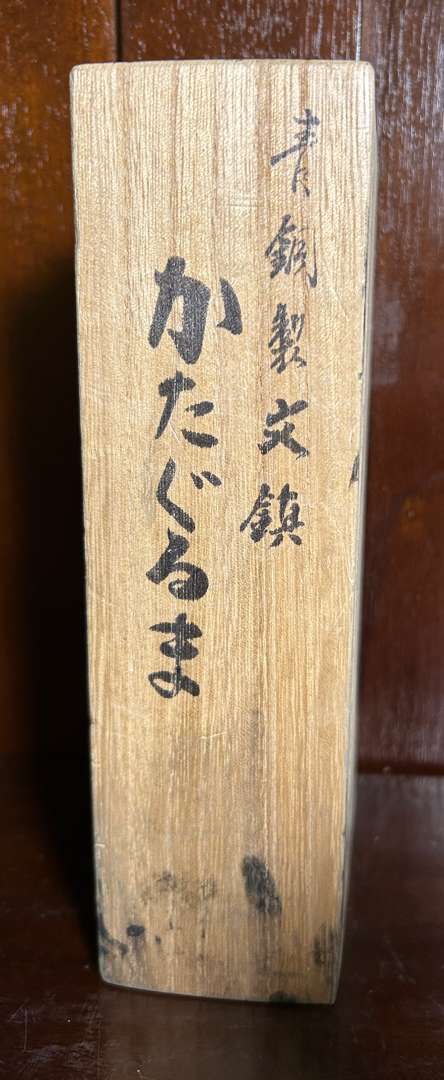 青銅製文鎮
かたぐるま